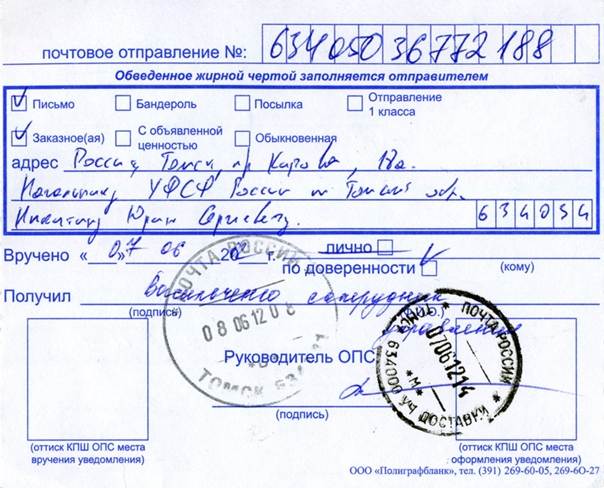 почтовое отправление №: 63405036772188
Обведенное жирной чертой заполняется отправителем
Письмо Бандероль Посылка Отправление 1 класса
Заказное(ая) С объявленной ценностью Обыкновенная
адрес Россия, Томск, пр. Кирова, 18а.
Начальнику УФСБ России по Томской обл.
Никитину Юрию Сергеевичу. 634054
Вручено «07» 06 20 г. лично
по доверенности (кому)
Получил
(подпись) (Ф.И.О.)
управления
ПОЧТА РОССИИ
08 06 12 08
ТОМСК
Руководитель ОПС
(подпись)
ПОЧТА РОССИИ * ТОМСК 634000 УЧ ДОСТАВКИ *
07 06 12 14
*М*
(оттиск КПШ ОПС места вручения уведомления)
(оттиск КПШ ОПС места оформления уведомления)
ООО «Полиграфбланк», тел. (391) 269-60-05, 269-60-27